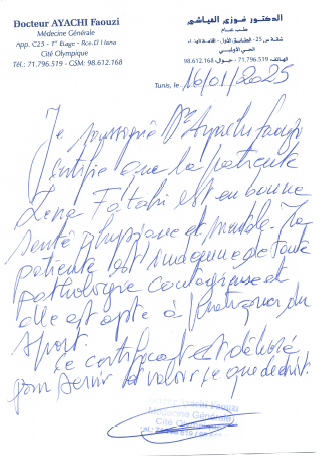 Docteur AYACHI Faouzi
Médecine Générale
App. C23 - 1er Etage - Rce.El Hana
Cité Olympique
Tél.: 71.796.519 - GSM: 98.612.168
الدكتور فوزي العياشي
طب عام
الحي الأولمبي
الهاتف : 71.796.519 - جوال : 98.612.168
Tunis, le 16/01/2025
Je soussigné Dr Ayachi Faouzi
certifie que la patiente
est en bonne
santé physique et mentale. La
patiente est indemne de toute
pathologie contagieuse et
elle est apte à pratiquer du
sport.
Ce certificat est délivré
pour servir et valoir ce que de droit.
Ayachi Faouzi
Médecine Générale
Cité Olympique